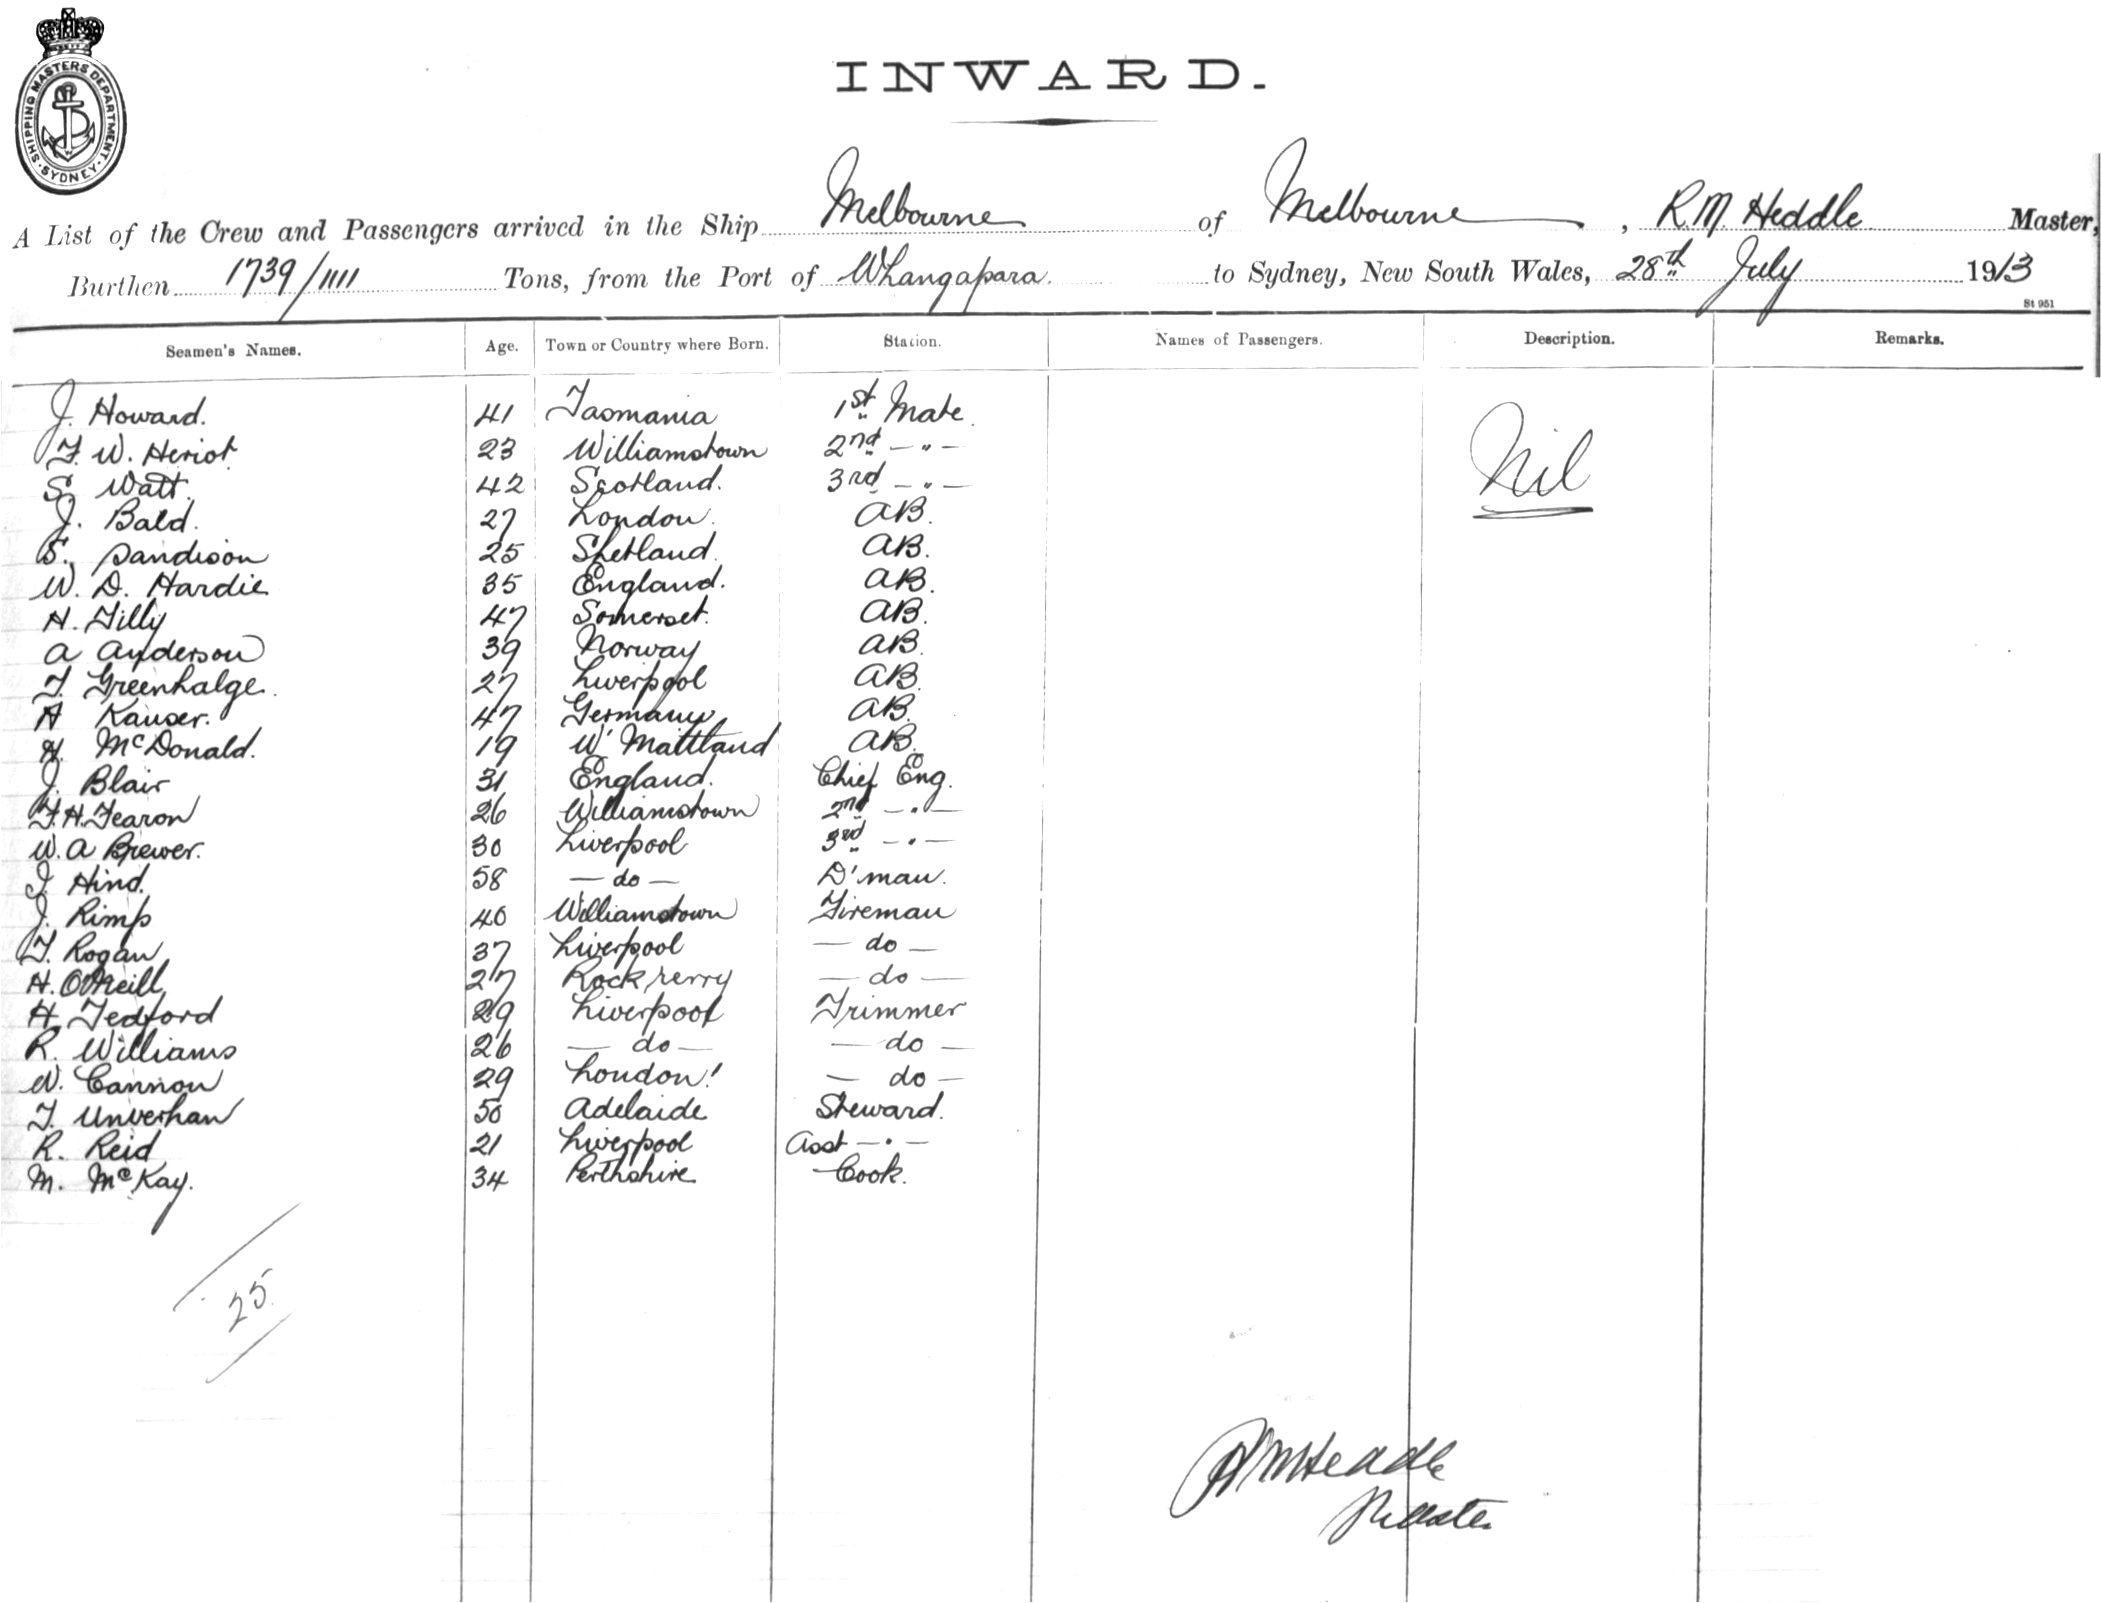 SHIPPING MASTERS DEPARTMENT · SYDNEY ·
INWARD.
A List of the Crew and Passengers arrived in the Ship Melbourne of Melbourne, R.M. Heddle Master,
Burthen 1739/1111 Tons, from the Port of Whangapara. to Sydney, New South Wales, 28th July 1913
St 951
Seamen's Names. Age. Town or Country where Born. Station. Names of Passengers. Description. Remarks.
J. Howard. 41 Tasmania 1st Mate
F. W. Heriot 23 Williamstown 2nd — " —
S. Watt. 42 Scotland. 3rd — " —
J. Bald. 27 London. AB.
S. Sandison 25 Shetland. AB.
W. D. Hardie 35 England. AB.
H. Tilly 47 Somerset. AB.
A Anderson 39 Norway AB.
T. Greenhalge. 27 Liverpool AB.
A Kauser. 47 Germany AB.
H. McDonald. 19 W' Maitland AB.
J. Blair 31 England. Chief Eng.
F. H. Fearon 26 Williamstown 2nd — " —
W. A Brewer. 30 Liverpool 3rd — " —
J. Hind. 58 — do — D'man.
J. Rimp 40 Williamstown Fireman
T. Rogan 37 Liverpool — do —
H. O'Neill 27 Rock Ferry — do —
H. Tedford 29 Liverpool Trimmer
R. Williams 26 — do — — do —
W. Cannon 29 London! — do —
F. Unverhan 50 Adelaide Steward.
R. Reid 21 Liverpool Asst — " —
M. McKay. 34 Perthshire Cook.
Nil
25
RMHeddle
Master